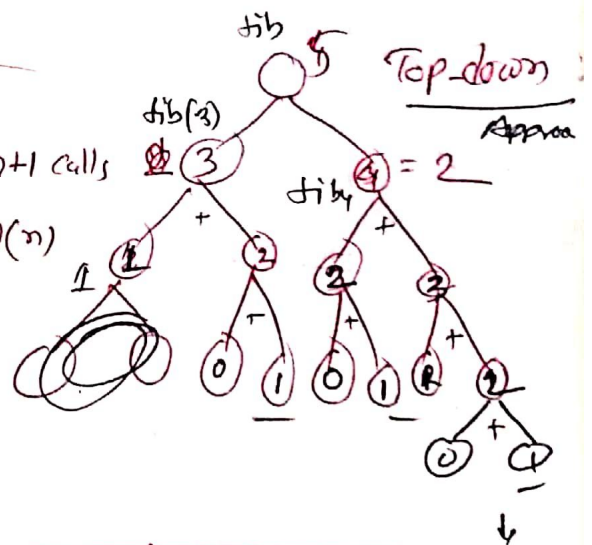 fib
5
Top-down
Approa
fib(3)
n+1 calls
3
4 = 2
(n)
fib4
+
+
1
1
2
2
3
+
+
+
0
1
0
1
2
+
0
1